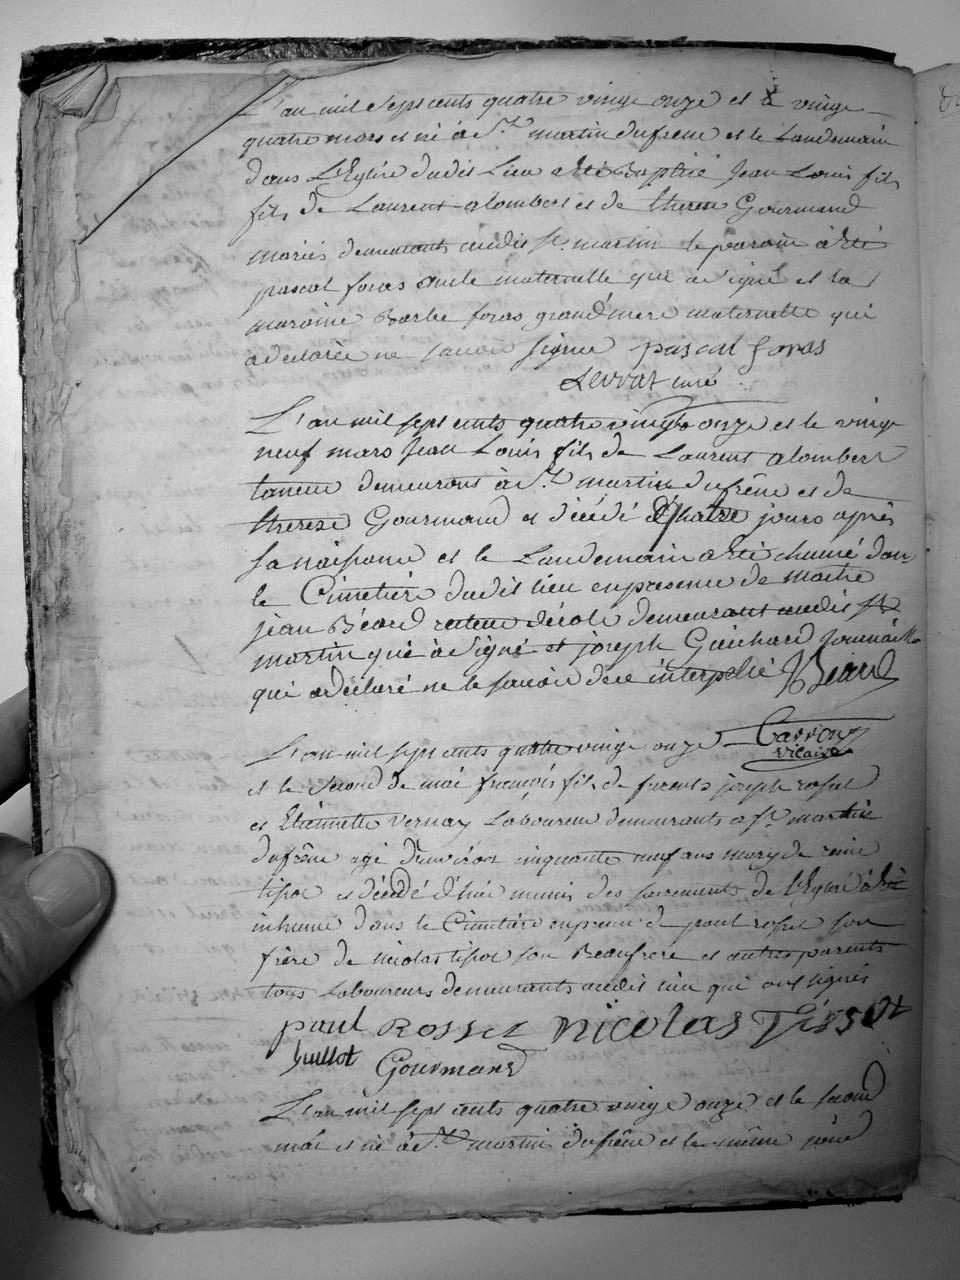 L'an mil sept cents quatre vingt onze et le vingt
quatre mars est né à St martin dufrene et le Landemain
dans L'Eglise dudit Lieu a été Baptisé Jean Louis fils
fils de Laurent alombert et de therese Gourmand
mariés demeurants audit St martin le parain a été
pascal foras oncle maternelle qui a signé et la
maraine Barbe foras grand mere maternelle qui
a declarée ne savoir signer pascal foras
Levrat curé
L'an mil sept cents quatre vingt onze et le vingt
neuf mars Jean Louis fils de Laurent alombert
taneur demeurant à St martin dufrêne et de
therese Gourmand est décédé quatre jours après
sa naisance et le Landemain a été inhumé dans
le Cimetière dudit lieu en presence de maitre
jean Béard recteur d'école demeurant audit St
martin qui à signé et joseph Guichard
qui a déclaré ne le savoir de ce interpellé JBeard
L'an mil sept cents quatre vingt onze Carron
vicaire
et le second de mai françois fils de joseph rosset
et Etiennette vernay Laboureur demeurants a St martin
dufrêne agé d'environ cinquante neuf ans mary de reine
tisot est décédé d'hier munis des sacrements de l'Eglise à été
inhumé dans le Cimetière en presence de paul rosset son
frère de nicolas tisot son Beaufrere et autres parents
tous Laboureurs demeurants audit lieu qui ont signés
paul Rosset nicolas Tissot
Juillot Gourmand
L'an mil sept cents quatre vingt onze et le second
mai est né à St martin dufrêne et le même jour